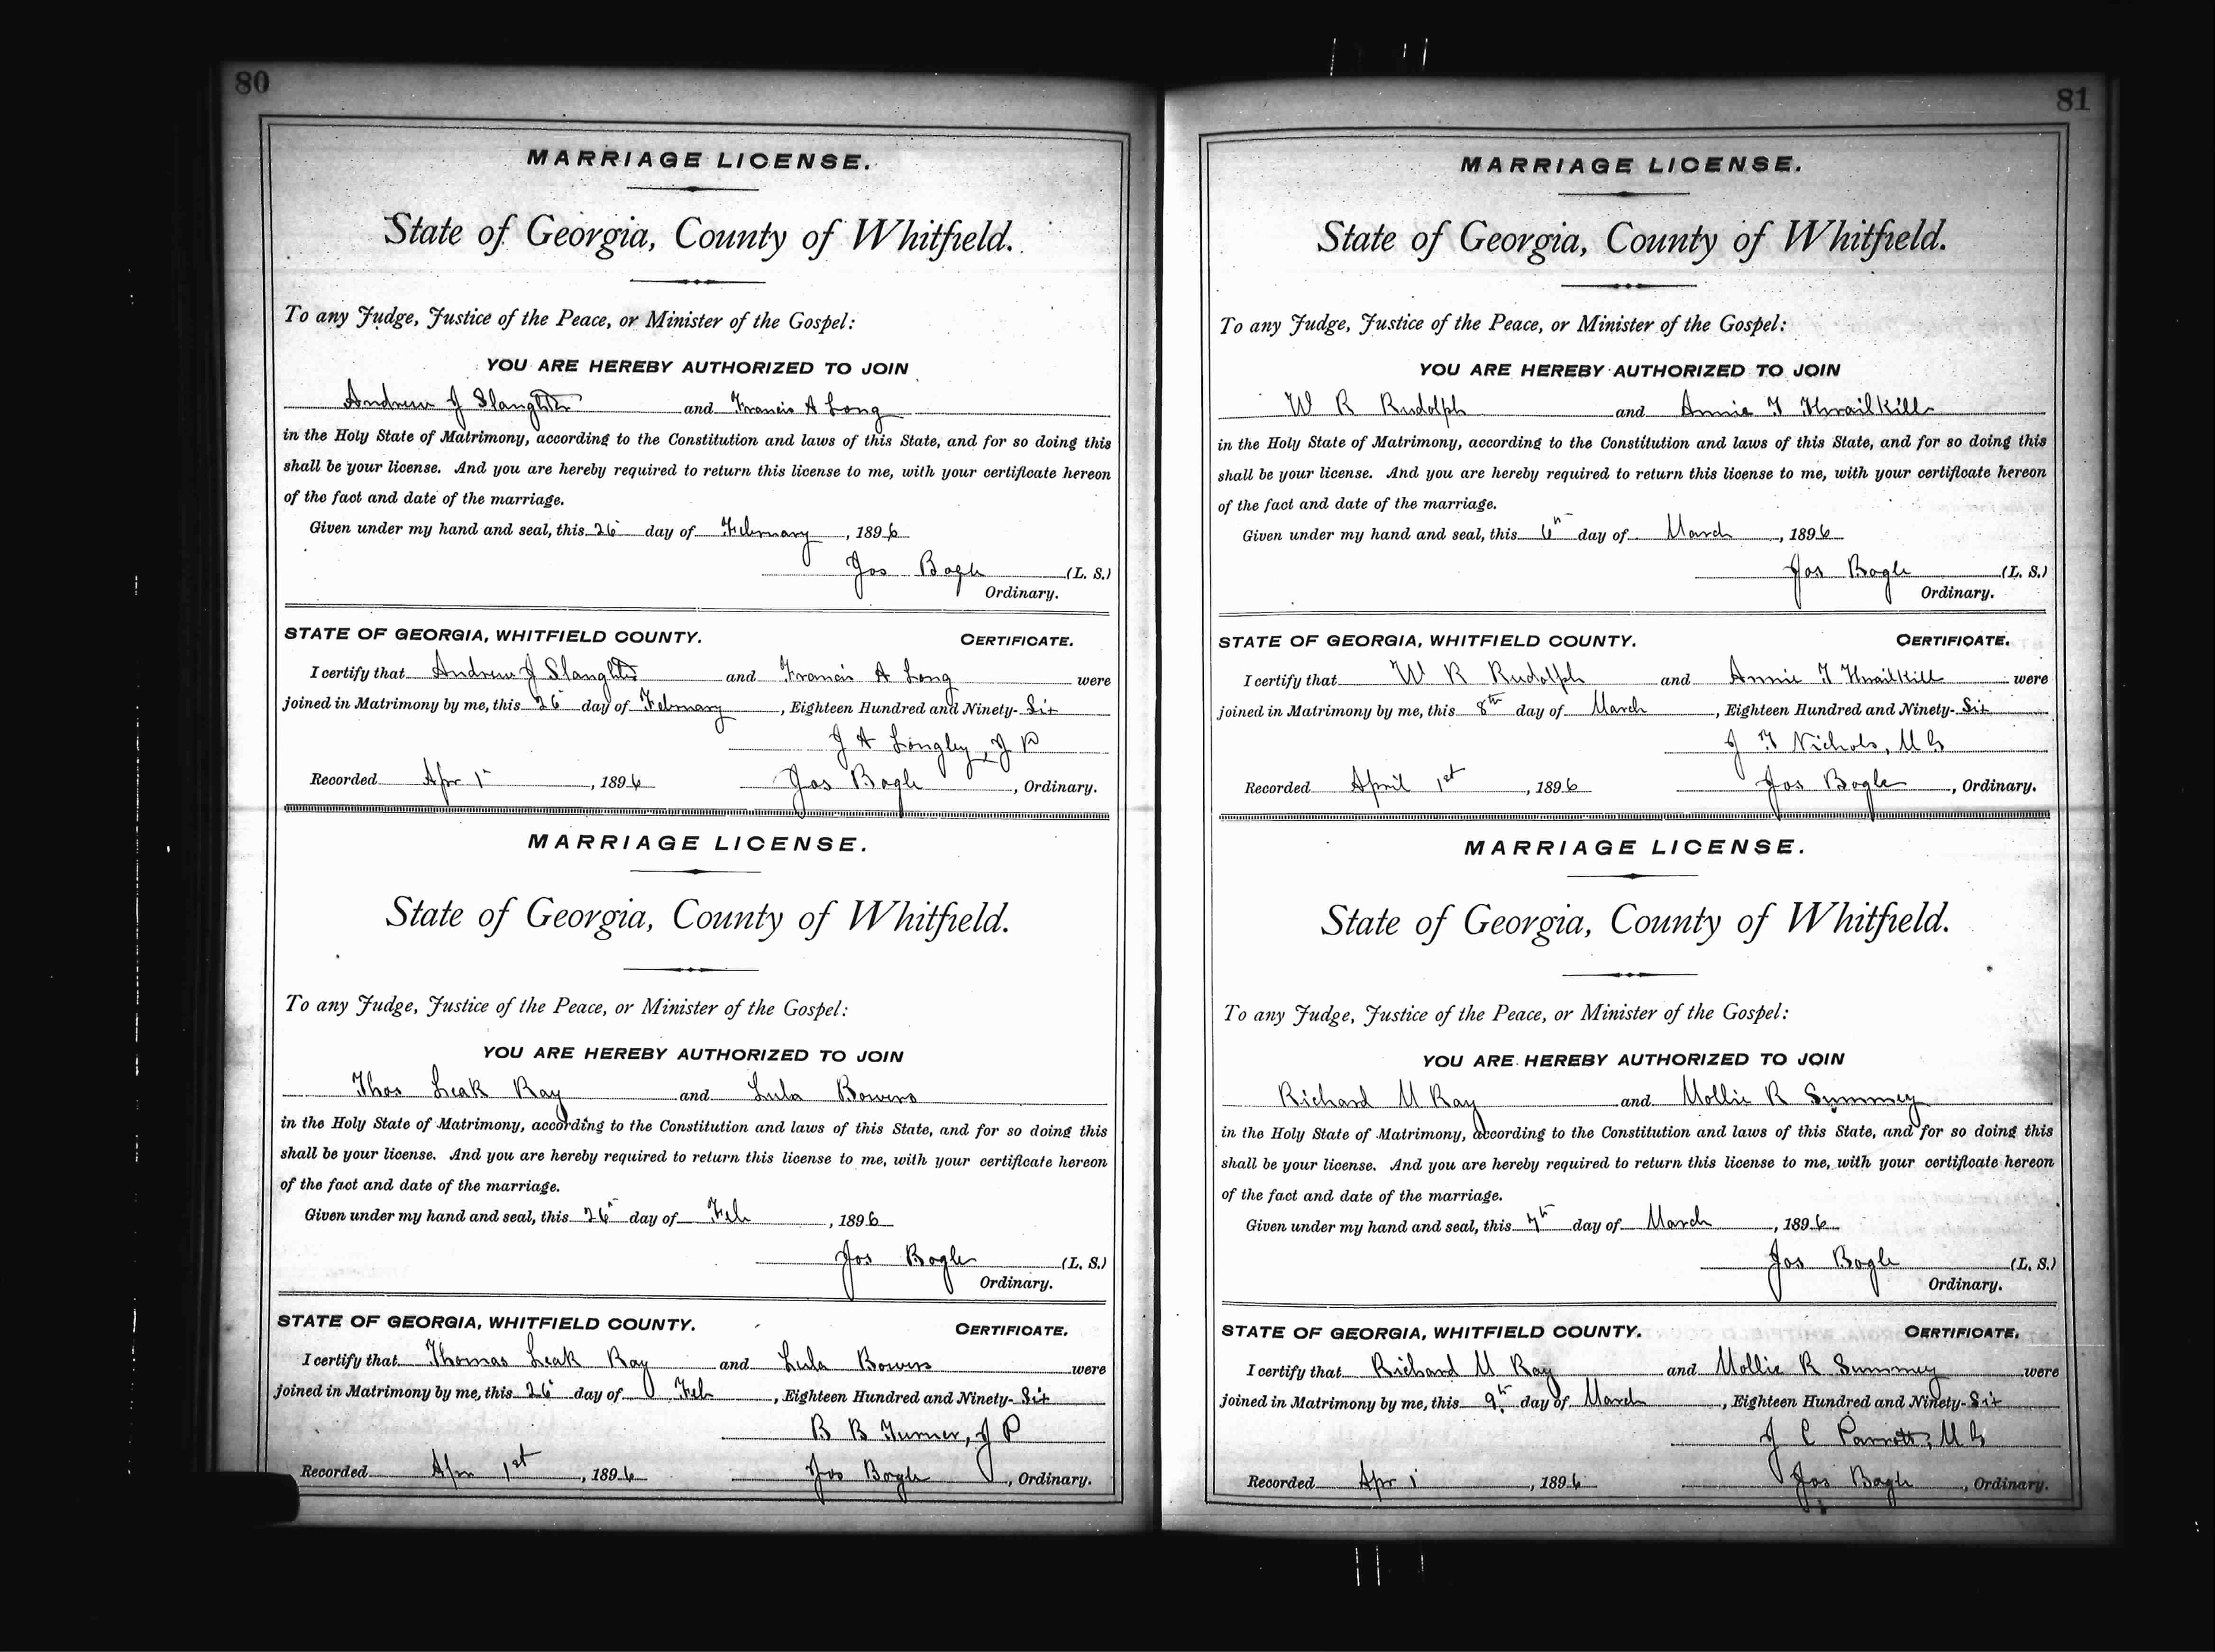 80
MARRIAGE LICENSE.
State of Georgia, County of Whitfield.
To any Judge, Justice of the Peace, or Minister of the Gospel:
YOU ARE HEREBY AUTHORIZED TO JOIN
Andrew J Slaughter and Francis A Long
in the Holy State of Matrimony, according to the Constitution and laws of this State, and for so doing this
shall be your license. And you are hereby required to return this license to me, with your certificate hereon
of the fact and date of the marriage.
Given under my hand and seal, this 26 day of February, 1896
Jos Bogle (L. S.)
Ordinary.
STATE OF GEORGIA, WHITFIELD COUNTY. CERTIFICATE.
I certify that Andrew J Slaughter and Francis A Long were
joined in Matrimony by me, this 26 day of February, Eighteen Hundred and Ninety-Six
J A Longley, J P
Recorded Apr 1, 1896 Jos Bogle, Ordinary.
MARRIAGE LICENSE.
State of Georgia, County of Whitfield.
To any Judge, Justice of the Peace, or Minister of the Gospel:
YOU ARE HEREBY AUTHORIZED TO JOIN
Thos Leak Ray and Lula Bowers
in the Holy State of Matrimony, according to the Constitution and laws of this State, and for so doing this
shall be your license. And you are hereby required to return this license to me, with your certificate hereon
of the fact and date of the marriage.
Given under my hand and seal, this 26 day of Feb, 1896
Jos Bogle (L. S.)
Ordinary.
STATE OF GEORGIA, WHITFIELD COUNTY. CERTIFICATE.
I certify that Thomas Leak Ray and Lula Bowers were
joined in Matrimony by me, this 26 day of Feb, Eighteen Hundred and Ninety-Six
B B Turner, J P
Recorded Apr 1st, 1896 Jos Bogle, Ordinary.
81
MARRIAGE LICENSE.
State of Georgia, County of Whitfield.
To any Judge, Justice of the Peace, or Minister of the Gospel:
YOU ARE HEREBY AUTHORIZED TO JOIN
W R Rudolph and Annie T Thrailkill
in the Holy State of Matrimony, according to the Constitution and laws of this State, and for so doing this
shall be your license. And you are hereby required to return this license to me, with your certificate hereon
of the fact and date of the marriage.
Given under my hand and seal, this 6th day of March, 1896
Jos Bogle (L. S.)
Ordinary.
STATE OF GEORGIA, WHITFIELD COUNTY. CERTIFICATE.
I certify that W R Rudolph and Annie T Thrailkill were
joined in Matrimony by me, this 8th day of March, Eighteen Hundred and Ninety-Six
J T Nichols, M G
Recorded April 1st, 1896 Jos Bogle, Ordinary.
MARRIAGE LICENSE.
State of Georgia, County of Whitfield.
To any Judge, Justice of the Peace, or Minister of the Gospel:
YOU ARE HEREBY AUTHORIZED TO JOIN
Richard M Ray and Mollie R Summey
in the Holy State of Matrimony, according to the Constitution and laws of this State, and for so doing this
shall be your license. And you are hereby required to return this license to me, with your certificate hereon
of the fact and date of the marriage.
Given under my hand and seal, this 7th day of March, 1896
Jos Bogle (L. S.)
Ordinary.
STATE OF GEORGIA, WHITFIELD COUNTY. CERTIFICATE.
I certify that Richard M Ray and Mollie R Summey were
joined in Matrimony by me, this 9th day of March, Eighteen Hundred and Ninety-Six
J C Parrott, M G
Recorded Apr 1, 1896 Jos Bogle, Ordinary.